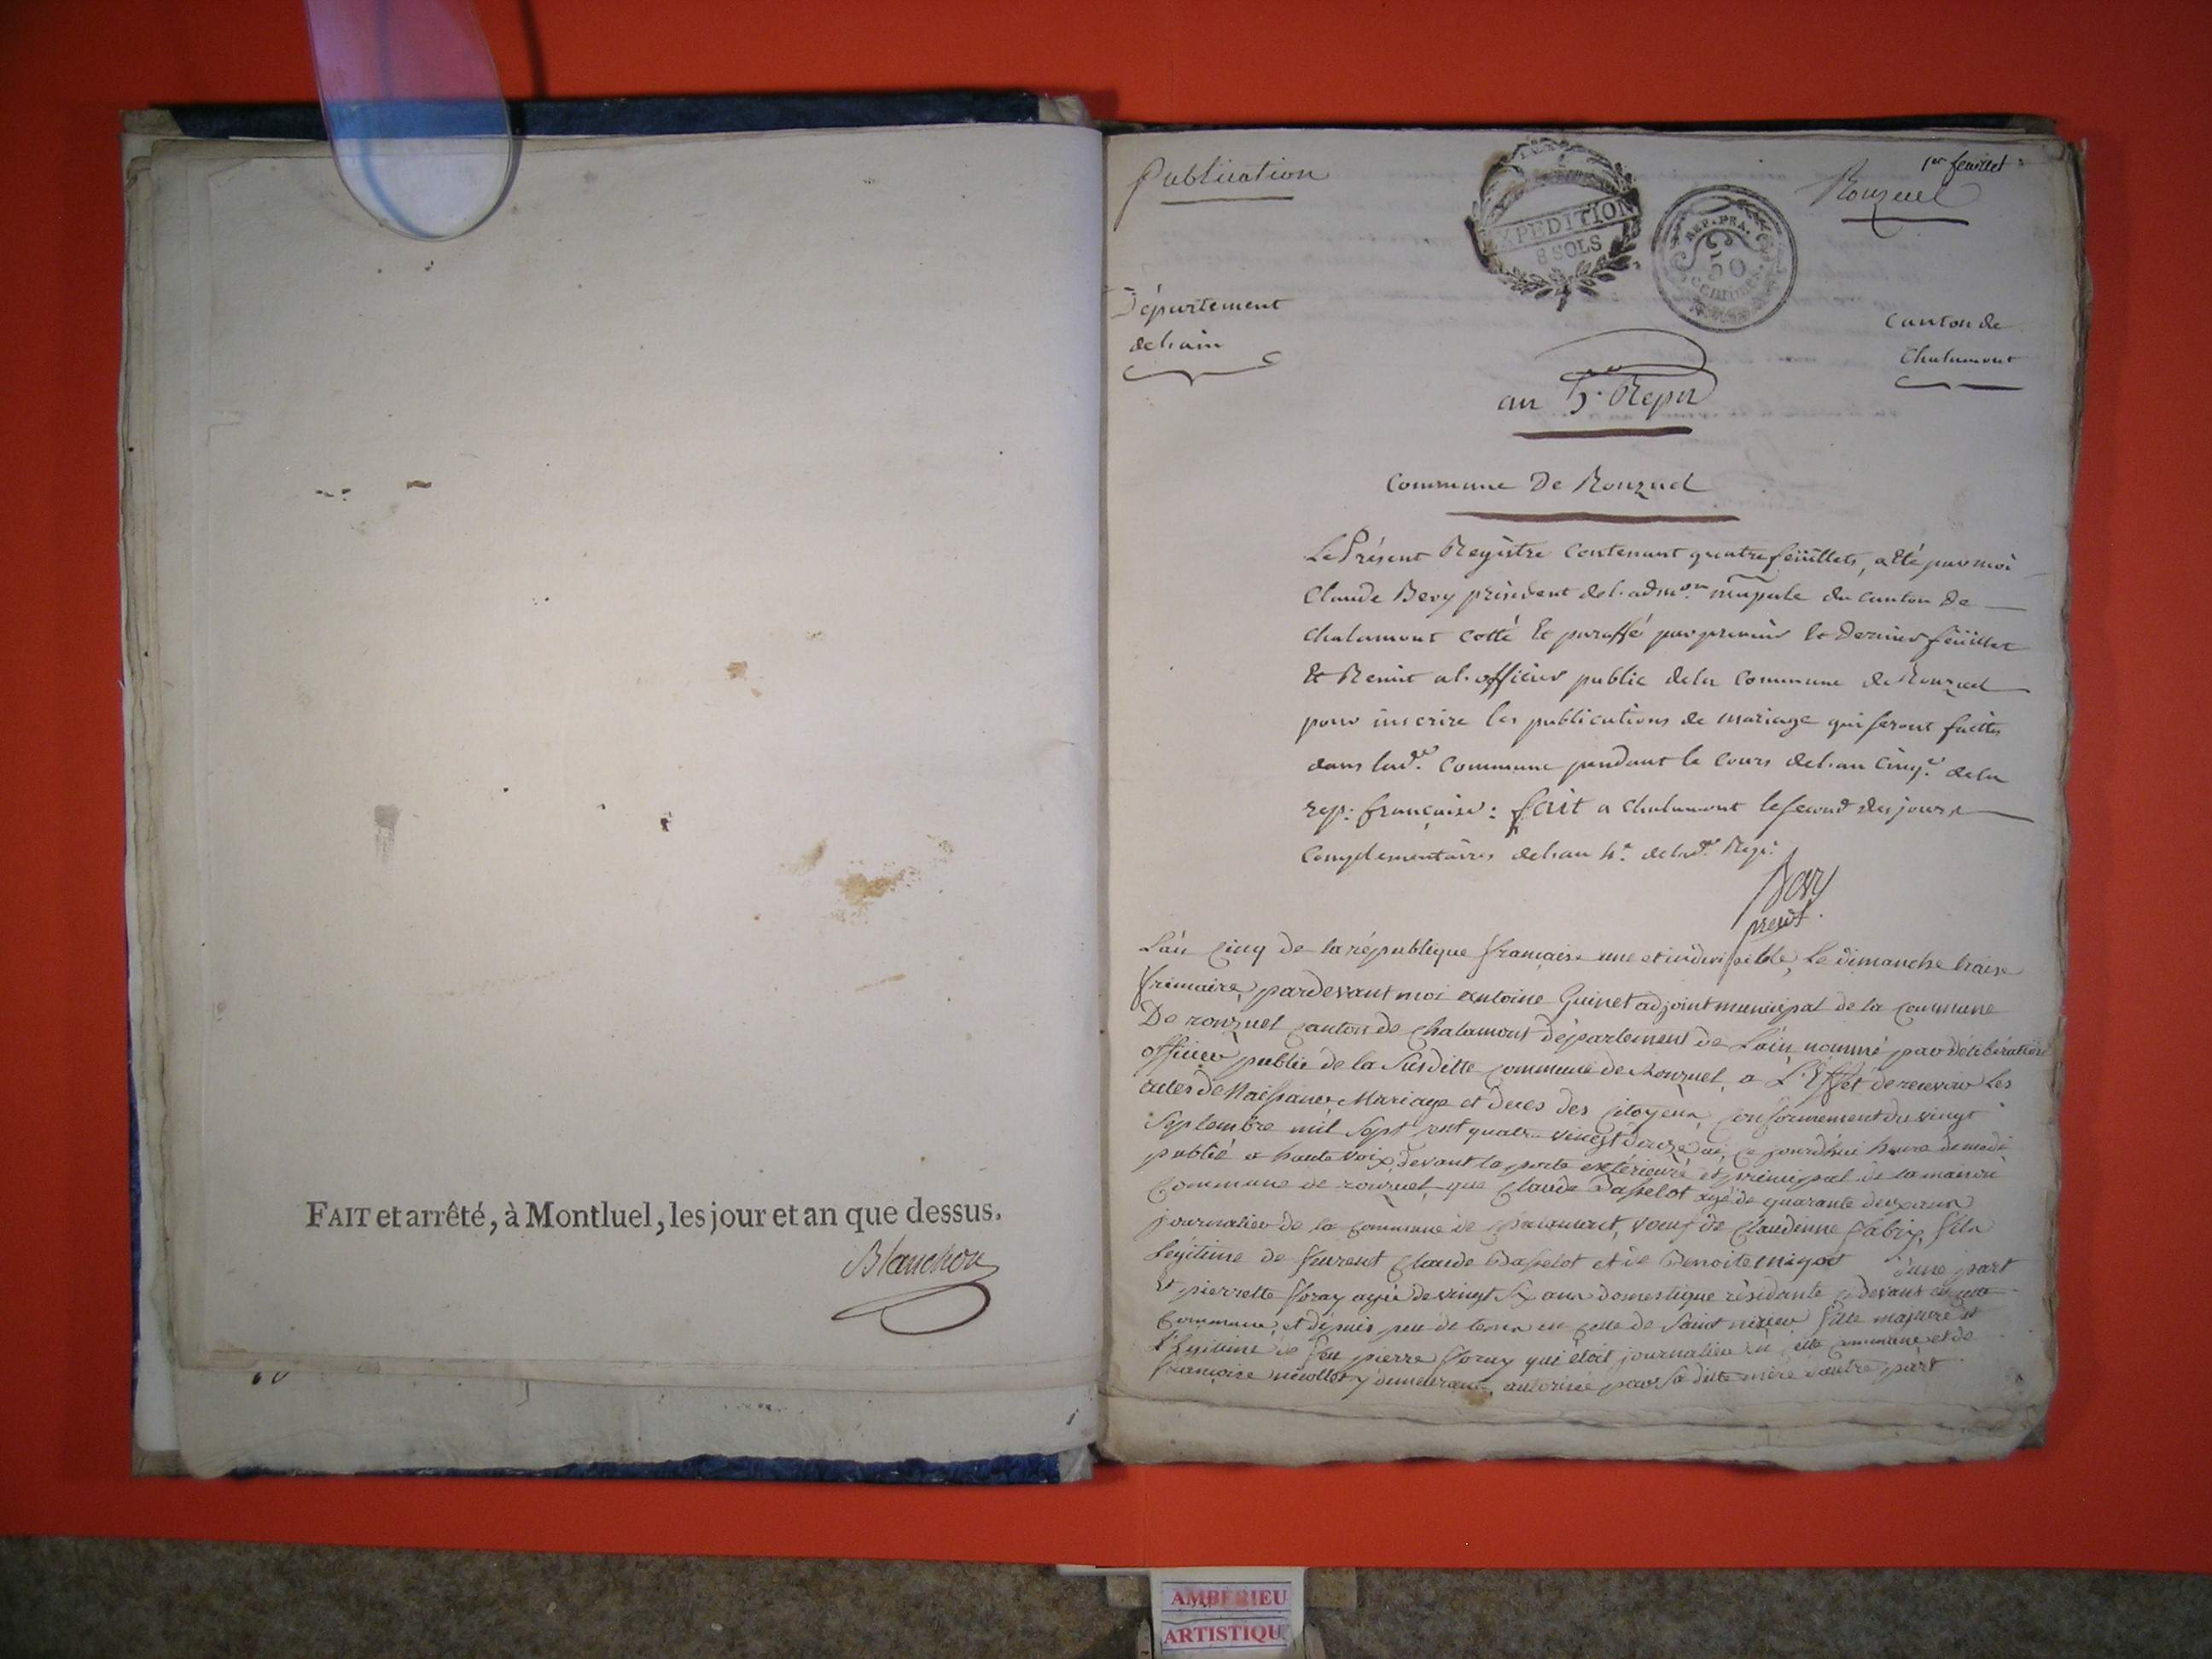 FAIT et arrêté, à Montluel, les jour et an que dessus.
Blanchon
Publication
1er feuillet
Ronzuel
EXPEDITION
8 SOLS
REP. FRA.
50
centimes
Département
de l'ain
Canton de
Chalamont
an 5e Repn
Commune De Ronzuel
Le Présent Registre Contenant quatre feüillets, a été par moi
Claude Bevy président de l'admon mupale du Canton De
Chalamont cotté et paraffé par premier et Dernier feüillet
Et Remit a l'officier public de la Commune de Ronzuel
pour inscrire les publications de mariage qui seront faittes
dans lade Commune pendant le Cours de l'an cinqe de la
rep: française: fait a Chalamont le second des jours
Complementaires de l'an 4e de lade Repe.
Bevy
presidt.
L'an Cinq de la république française une et indivisible, Le dimanche traise
frimaire, pardevant moi antoine Guinet adjoint municipal de la commune
De ronzuel canton de Chalamont département de L'ain, nommé par délibération
officier public de la Susditte commune de Ronzuel, a L'Effet de recevoir Les
actes de Naissance Mariage et deces des Citoyens, Conformement du vingt
Septembre mil Sept cent quatre vingt douze ai, ce jourd'hui heure de midi
publié a haute voix, devant la porte extérieure et principal de la mairie
Commune de ronzuel, que Claude Basselot agé de quarante deux ans
journalier de la commune de Chalamont, veuf de Claudinne Fabix, fils
Légitime de Claude Basselot et de Benoite migot d'une part
Et pierrette Floray agée de vingt Six ans domestique résidante cy devant en cette
Commune, et depuis peu de tems en celle de Saint nizier fille majeure et
Légitime de feu pierre Floray qui étoit journalier en cette commune et de
Françoise nicollet y demeurant, autorisée par Sa dite mère d'autre part
AMBERIEU
ARTISTIQU